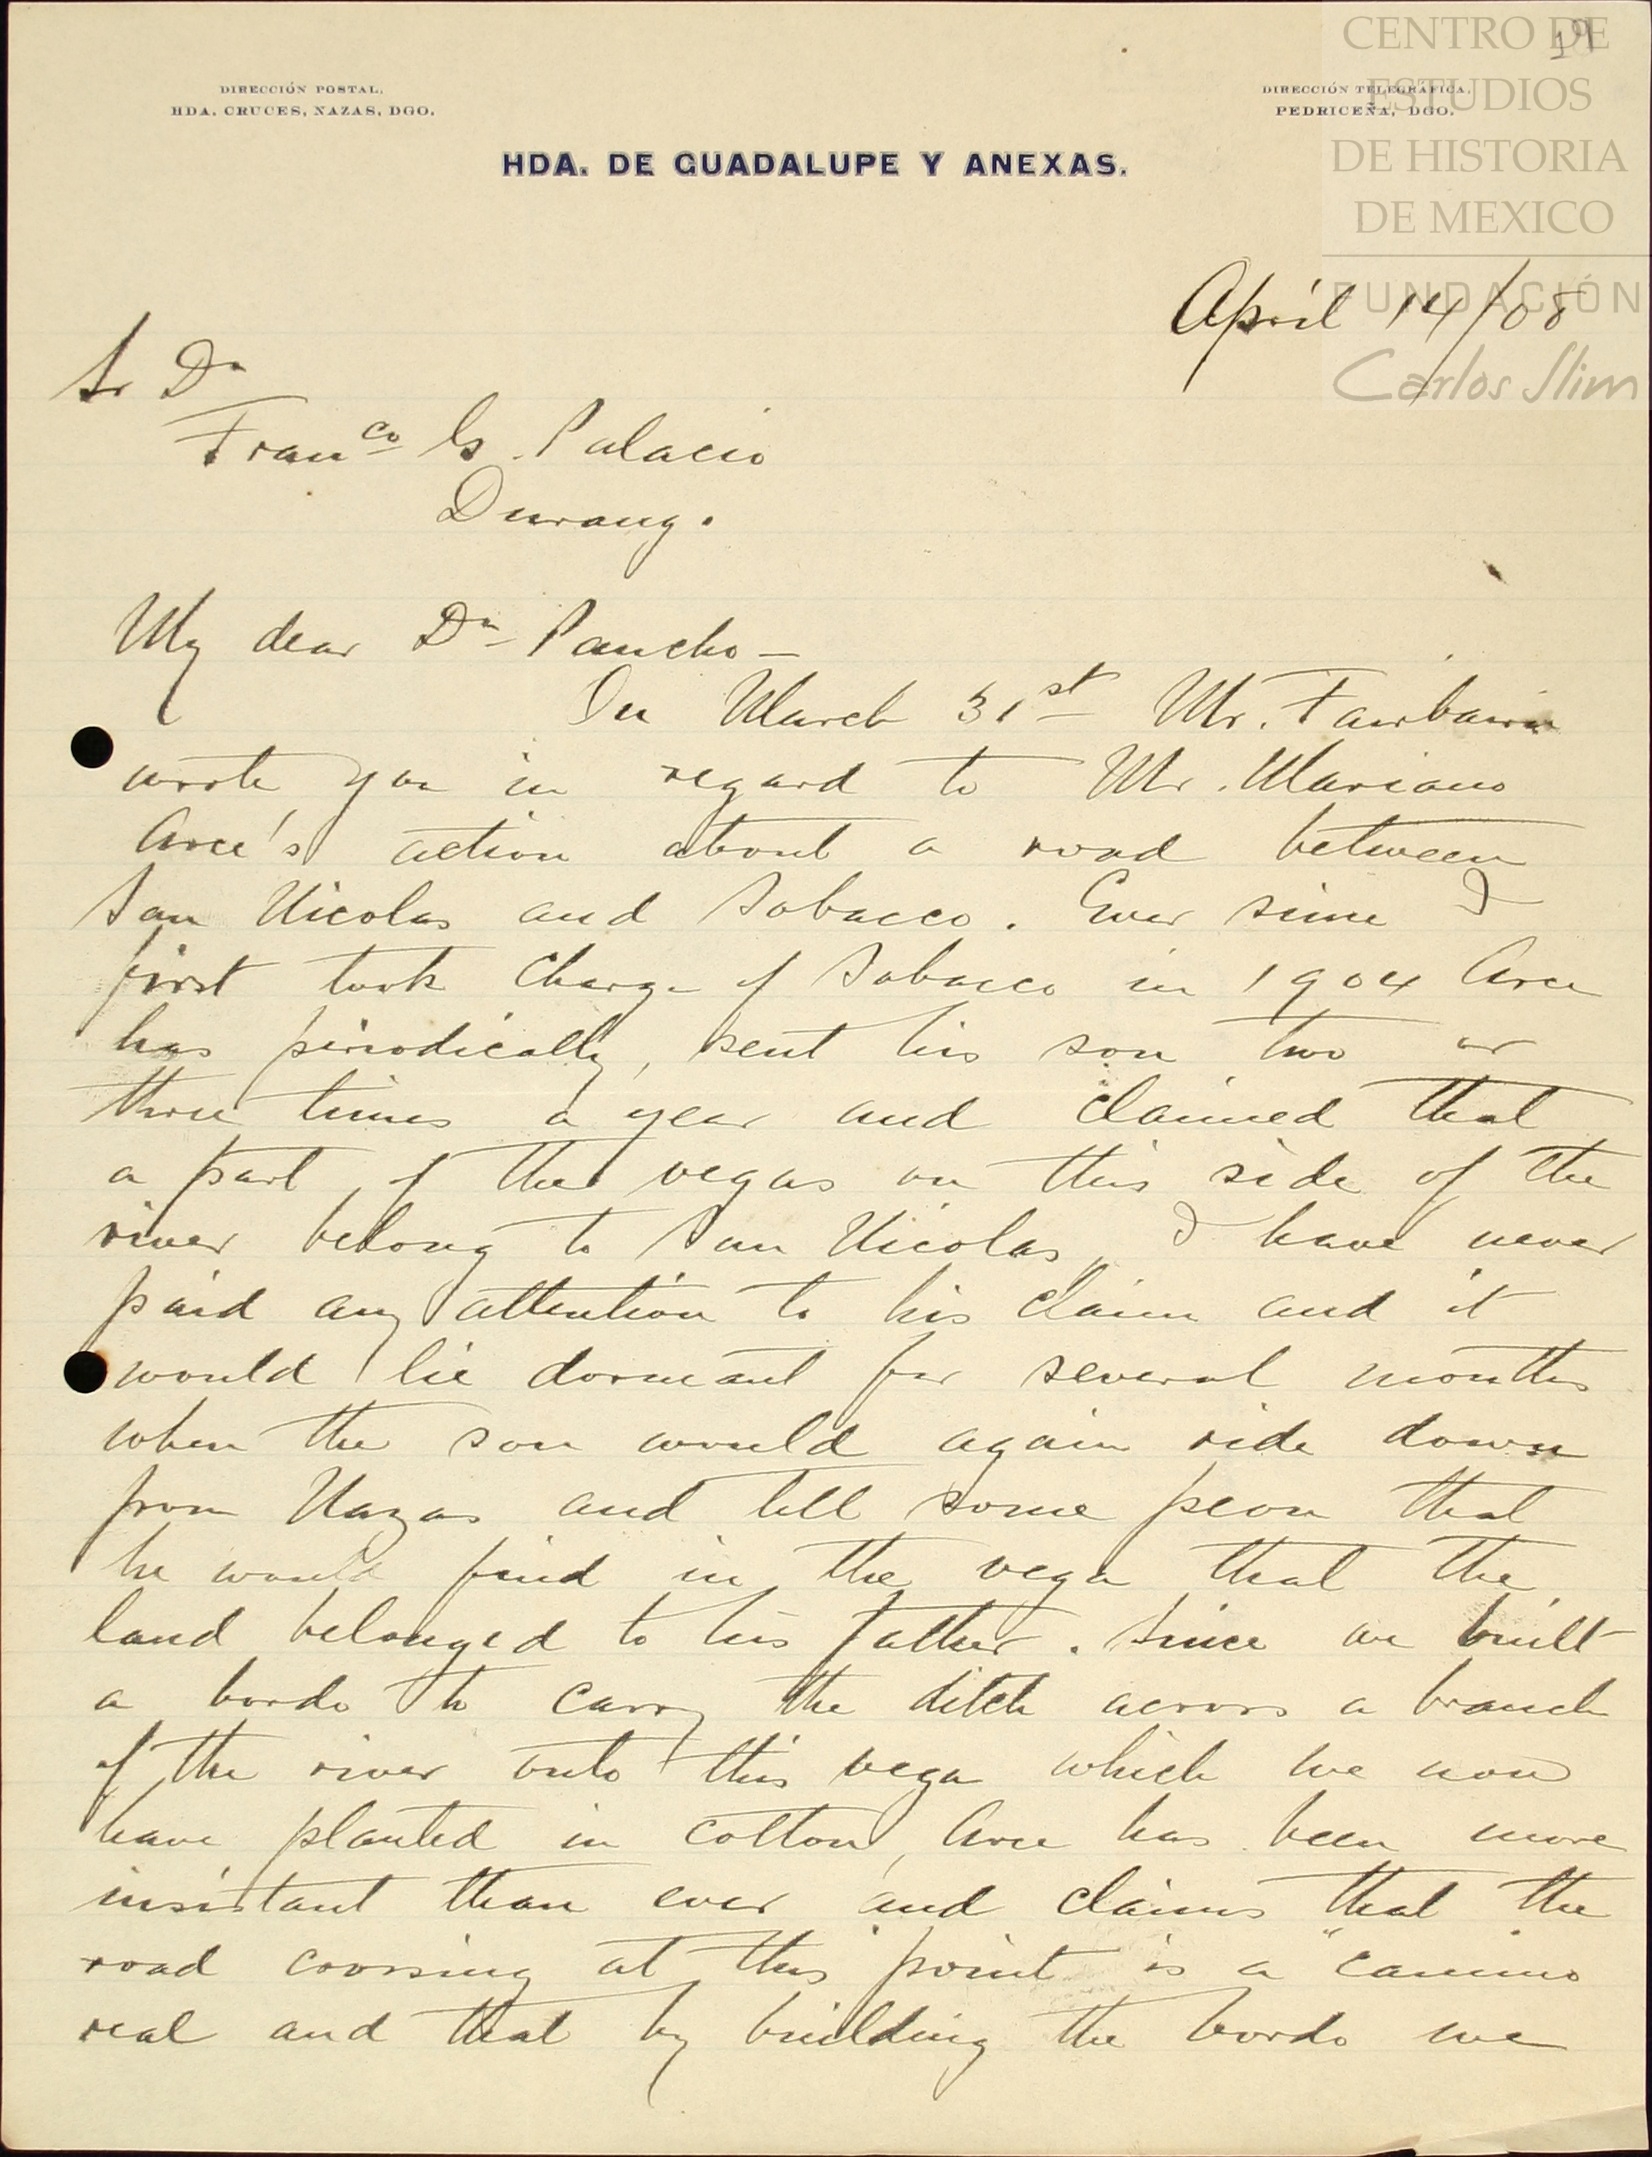 19
CENTRO DE
ESTUDIOS
DE HISTORIA
DE MEXICO
FUNDACIÓN
Carlos Slim
DIRECCIÓN POSTAL.
HDA. CRUCES, NAZAS, DGO.
DIRECCIÓN TELEGRÁFICA.
PEDRICEÑA, DGO.
HDA. DE GUADALUPE Y ANEXAS.
April 14/08
Sr Dn
Franco G. Palacio
Durang.
My dear Dn Pancho —
On March 31st Mr. Fairbairn
wrote you in regard to Mr. Mariano
Arce's action about a road between
San Nicolas and Sobaco. Ever since I
first took charge of Sobaco in 1904 Arce
has periodically, sent his son two or
three times a year and claimed that
a part of the vegas on this side of the
river belong to San Nicolas, I have never
paid any attention to his claim and it
would lie dormant for several months
when the son would again ride down
from Nazas and tell some peon that
he would find in the vega that the
land belonged to his father. Since we built
a bordo to carry the ditch across a branch
of the river onto this vega which we now
have planted in cotton, Arce has been more
insistant than ever and claims that the
road crossing at this point is a "camino
real and that by building the bordo we